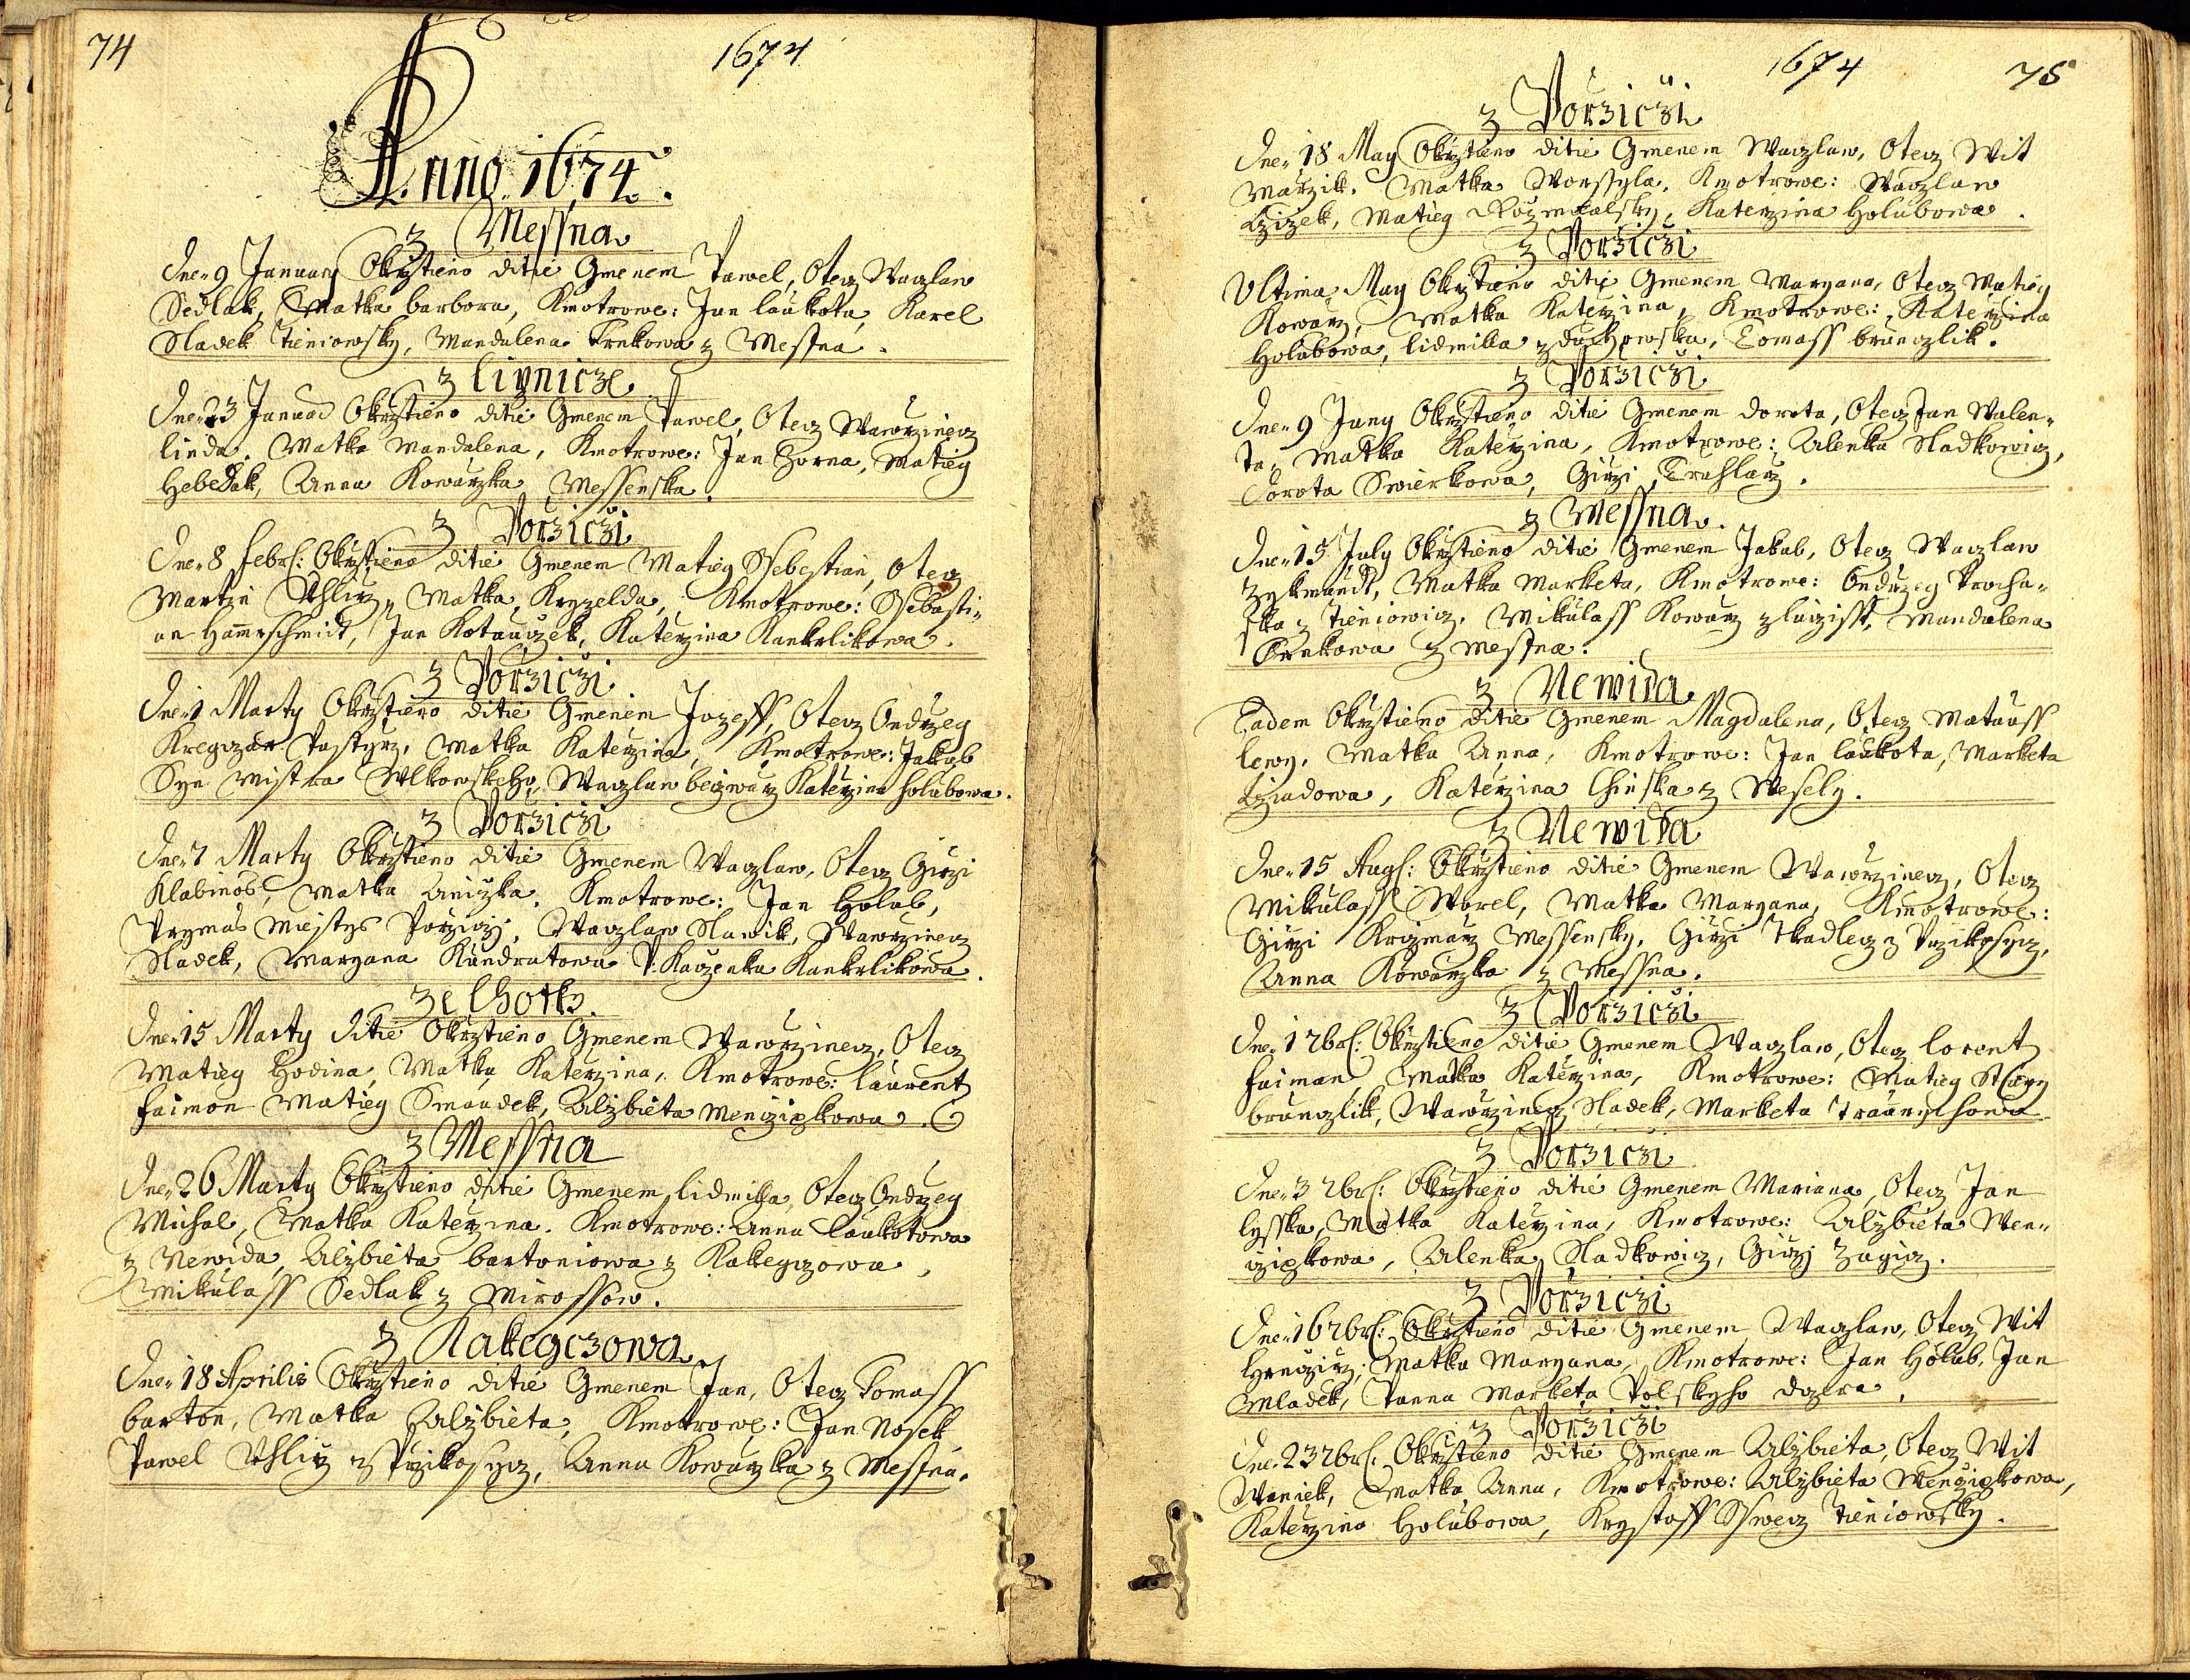 74
1674
Anno 1674.
z Messna
Dne 9 January Okrztieno ditie Gmenem Pawel, Otecz Waczlaw
Sedlak, Matka barbora, Kmotrowe: Jan laukota, Karel
Sladek Tieniowsky, Mandalena Trnkowa z Messna.
z lipnicze
Dne 23 Januarÿ Okrztieno ditie Gmenem Pawel, Otecz Wawrzinecz
linda. Matka Mandalena, Kmotrowe: Jan Horna, Matieg
Hebedak, Anna Kowarzka Messenska.
z Porziczi
Dne 8 Febr: Okrztieno ditie Gmenem Matieg Sebestian, Otecz
Martin Uhlirz, Matka Kryzelda, Kmotrowe: Sebasti-
an Hamrschmidt, Jan Kotauczek, Katerzina Kankrlikowa.
z Porziczi
Dne 1 Marty Okrztieno ditie Gmenem Jozeff, Otecz Ondrzeg
Kregczar Pastyrz, Matka Katerzina, Kmotrowe: Jakob
Syn Mistra Wlkowskeho, Waczlaw beczwarz Katerzina holubowa.
z Porziczi
Dne 7 Marty Okrztieno ditie Gmenem Waczlaw, Otecz Girzi
Klabinos, Matka Aniczka. Kmotrowe: Jan Holub,
Prymas Miestys Porziczj, Waczlaw Slawik, Wawrzinecz
Sladek, Maryana Kundratowa P: Kaczenka Kankrlikowa.
ze lhotk.
Dne 15 Marty Ditie Okrztieno Gmenem Wawrzinecz, Otecz
Matieg Hodina, Matka Katerzina, Kmotrowe: laurent
faimon Matieg Smaudek, Alzbieta Menczigkowa.
z Messna
Dne 26 Marty Okrztieno ditie Gmenem lidmilla, Otecz Ondrzeg
Michal, Matka Katerzina. Kmotrowe: Anna laukotowa
z Newida, Alzbieta bartoniowa z Kakegczowa,
Mikulass Sedlak z Mirossow.
z Kakegczowa
Dne 18 Aprilis Okrztieno ditie Gmenem Jan, Otecz Tomass
barton, Matka Alzbieta, Kmotrowe: Jan Nosek
Pawel Uhlirz z Przikosycz, Anna Kowarzka z Messna.
1674
75
z Porziczi
Dne 18 May Okrztieno ditie Gmenem Waczlaw, Otecz Wit
Marzik. Matka Worssyla. Kmotrowe: Waczlaw
Czizek, Matieg Rozmitalsky, Katerzina Holubowa.
z Porziczi
Ultima May Okrztieno ditie Gmenem Maryana, Otecz Matieg
Kowarz, Matka Katerzina, Kmotrowe: Katerzina
Holubowa, lidmilla z Duchowska, Tomass brunczlik.
z Porziczi
Dne 9 Juny Okrztieno ditie Gmenem Dorota, Otecz Jan Walen-
ta, Matka Katerzina, Kmotrowe: Alenka Sladkowicz,
Dorota Swierkowa, Girzi Truhlarz.
z Messna.
Dne 15 July Okrztieno ditie Gmenem Jakub, Otecz Waczlaw
Zykmundt, Matka Marketa, Kmotrowe: Ondrzeg Procha-
ska z Tieniowicz. Mikulass Kowarz z luczisst, Mandalena
Trnkowa z Messna.
z Newida
Eadem Okrztieno ditie Gmenem Magdalena, Otecz Matauss
lewy, Matka Anna, Kmotrowe: Jan laukota, Marketa
Czadowa, Katerzina Chinska z Wesely.
z Newida
Dne 15 Aug: Okrztieno ditie Gmenem Wawrzinecz, Otecz
Mikulass Worel, Matka Maryana, Kmotrowe:
Girzi Krczmarz Messensky, Girzi Tkadlecz z Przikosycz,
Anna Kowarzka z Messna.
z Porziczi
Dne 1 7br: Okrztieno ditie Gmenem Waczlaw, Otecz lorent
faiman, Matka Katerzina, Kmotrowe: Matieg Stary
brunczlik, Wawrzinecz Sladek, Marketa
z Porziczi
Dne 3 7br: Okrztieno ditie Gmenem Mariana, Otecz Jan
lysska, Matka Katerzina, Kmotrowe: Alzbieta Men-
czigkowa, Alenka Sladkowicz, Girzj Zagicz.
z Porziczi
Dne 16 7br: Okrztieno ditie Gmenem Waczlaw, Otecz Wit
Hrnczirz, Matka Maryana, Kmotrowe: Jan Holub, Jan
Mladek, Panna Marketa Polskyho dczera.
z Porziczi
Dne 23 7br: Okrztieno ditie Gmenem Alzbieta, Otecz Wit
Waniek, Matka Anna, Kmotrowe: Alzbieta Menczigkowa,
Katerzina Holubowa, Krystoff Sswecz Tieniowsky.